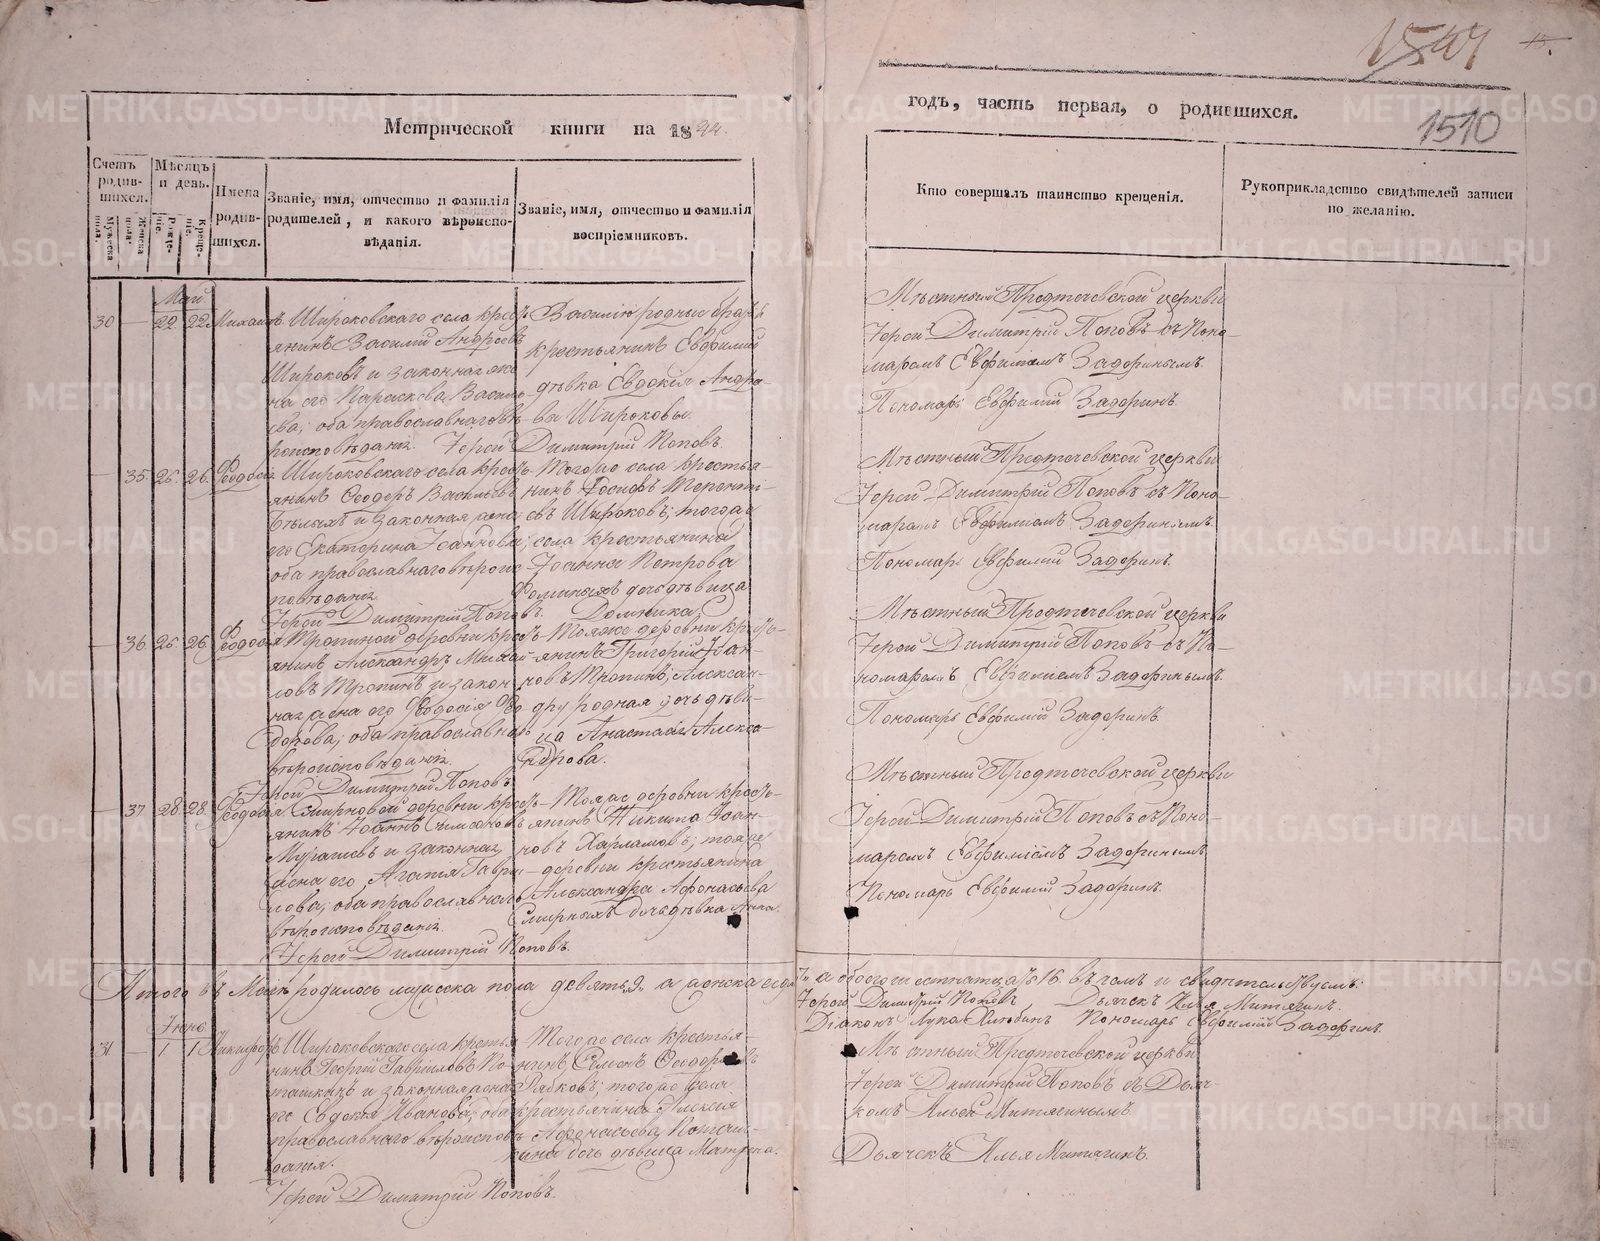 1547
15.
1510
Метрической книги на 1842.
годъ, часть первая, о родившихся.
Счетъ родив-
шихся.
Мужеска пола.
Женска пола.
Мѣсяцъ
и день.
Рожде-
нiе.
Креще-
нiе.
Имена
родив-
шихся.
Званiе, имя, отчество и фамилiя
родителей, и какого вѣроиспо-
вѣданiя.
Званiе, имя, отчество и фамилiя
воспрiемниковъ.
Кто совершалъ таинство крещенiя.
Рукоприкладство свидѣтелей записи
по желанiю.
Май
30 — 22 22 Михаилъ
Широковскаго села кресть-
янинъ Василiй Андреевъ
Широковъ и законная же-
на его Параскева Василь-
ева; оба православнаго вѣ-
роисповѣданiя.
Iерей Димитрiй Поповъ.
Василiю родный братъ
крестьянинъ Евфимiй
дѣвка Евдокiя Андре-
вы Широковы.
Мѣстный Предтечевской церкви
Iерей Димитрiй Поповъ съ Поно-
маремъ Евфимiемъ Задоринымъ.
Пономарь Евфимiй Задоринъ.
— 35 26 26 Феодосiя
Широковскаго села кресть-
янинъ Феодоръ Васильевъ
Бѣлыхъ и законная жена
его Екатерина Iоаннова;
оба православнаго вѣроис-
повѣданiя.
Iерей Димитрiй Поповъ.
Тогоже села крестья-
нинъ Iосифъ Теренть-
евъ Широковъ; тогоже
села крестьянина
Iоанна Петрова
Фоминыхъ дочь дѣвица
Домника.
Мѣстный Предтечевской церкви
Iерей Димитрiй Поповъ съ Поно-
маремъ Евфимiемъ Задоринымъ.
Пономарь Евфимiй Задоринъ.
— 36 26 26 Феодосiя
Тропиной деревни кресть-
янинъ Александръ Михай-
ловъ Тропинъ и закон-
ная жена его Феодосiя Фео-
дорова; оба православнаго
вѣроисповѣданiя.
Iерей Димитрiй Поповъ.
Тояже деревни кресть-
янинъ Григорiй Iоан-
новъ Тропинъ; Алексан-
дру родная дочь дѣви-
ца Анастасiя Алекса-
ндрова.
Мѣстный Предтечевской церкви
Iерей Димитрiй Поповъ съ По-
номаремъ Евфимiемъ Задоринымъ.
Пономарь Евфимiй Задоринъ.
— 37 28 28 Феодосiя
Смирновой деревни кресть-
янинъ Iоаннъ Симеоновъ
и законная
жена его Агапiя Гаври-
лова; оба православнаго
вѣроисповѣданiя.
Iерей Димитрiй Поповъ.
Тояже деревни кресть-
янинъ Никита Iоан-
новъ Харламовъ; тояже
деревни крестьянина
Александра Афонасьева
Смирныхъ дочь дѣвка Анна.
Мѣстный Предтечевской церкви
Iерей Димитрiй Поповъ съ Поно-
маремъ Евфимiемъ Задоринымъ.
Пономарь Евфимiй Задоринъ.
Итого въ Маѣ родилось мужеска пола девять 9. а женска седмь 7. а обоего шестнатцать 16. въ чемъ и свидѣтельствуемъ:
Iерей Димитрiй Поповъ, Дьячекъ Илья Митягинъ.
Дiаконъ Лука Пономарь Евфимiй Задоринъ.
Iюнь
31 — 1 1 Никифоръ
Широковскаго села крестья-
нинъ Георгiй Гавриловъ По-
ташкинъ и законная жена
его Евдокiя Иванова; оба
православнаго вѣроиспов-
ѣданiя.
Iерей Димитрiй Поповъ.
Тогоже села крестья-
нинъ Семенъ Феодоровъ
Рябковъ; тогоже села
крестьянина Алексiя
Афонасьева Поташ-
кина дочь дѣвица Матрена.
Мѣстный Предтечевской церкви
Iерей Димитрiй Поповъ съ Дьяч-
комъ Ильей Митягинымъ.
Дьячекъ Илья Митягинъ.
METRIKI.GASO-URAL.RU